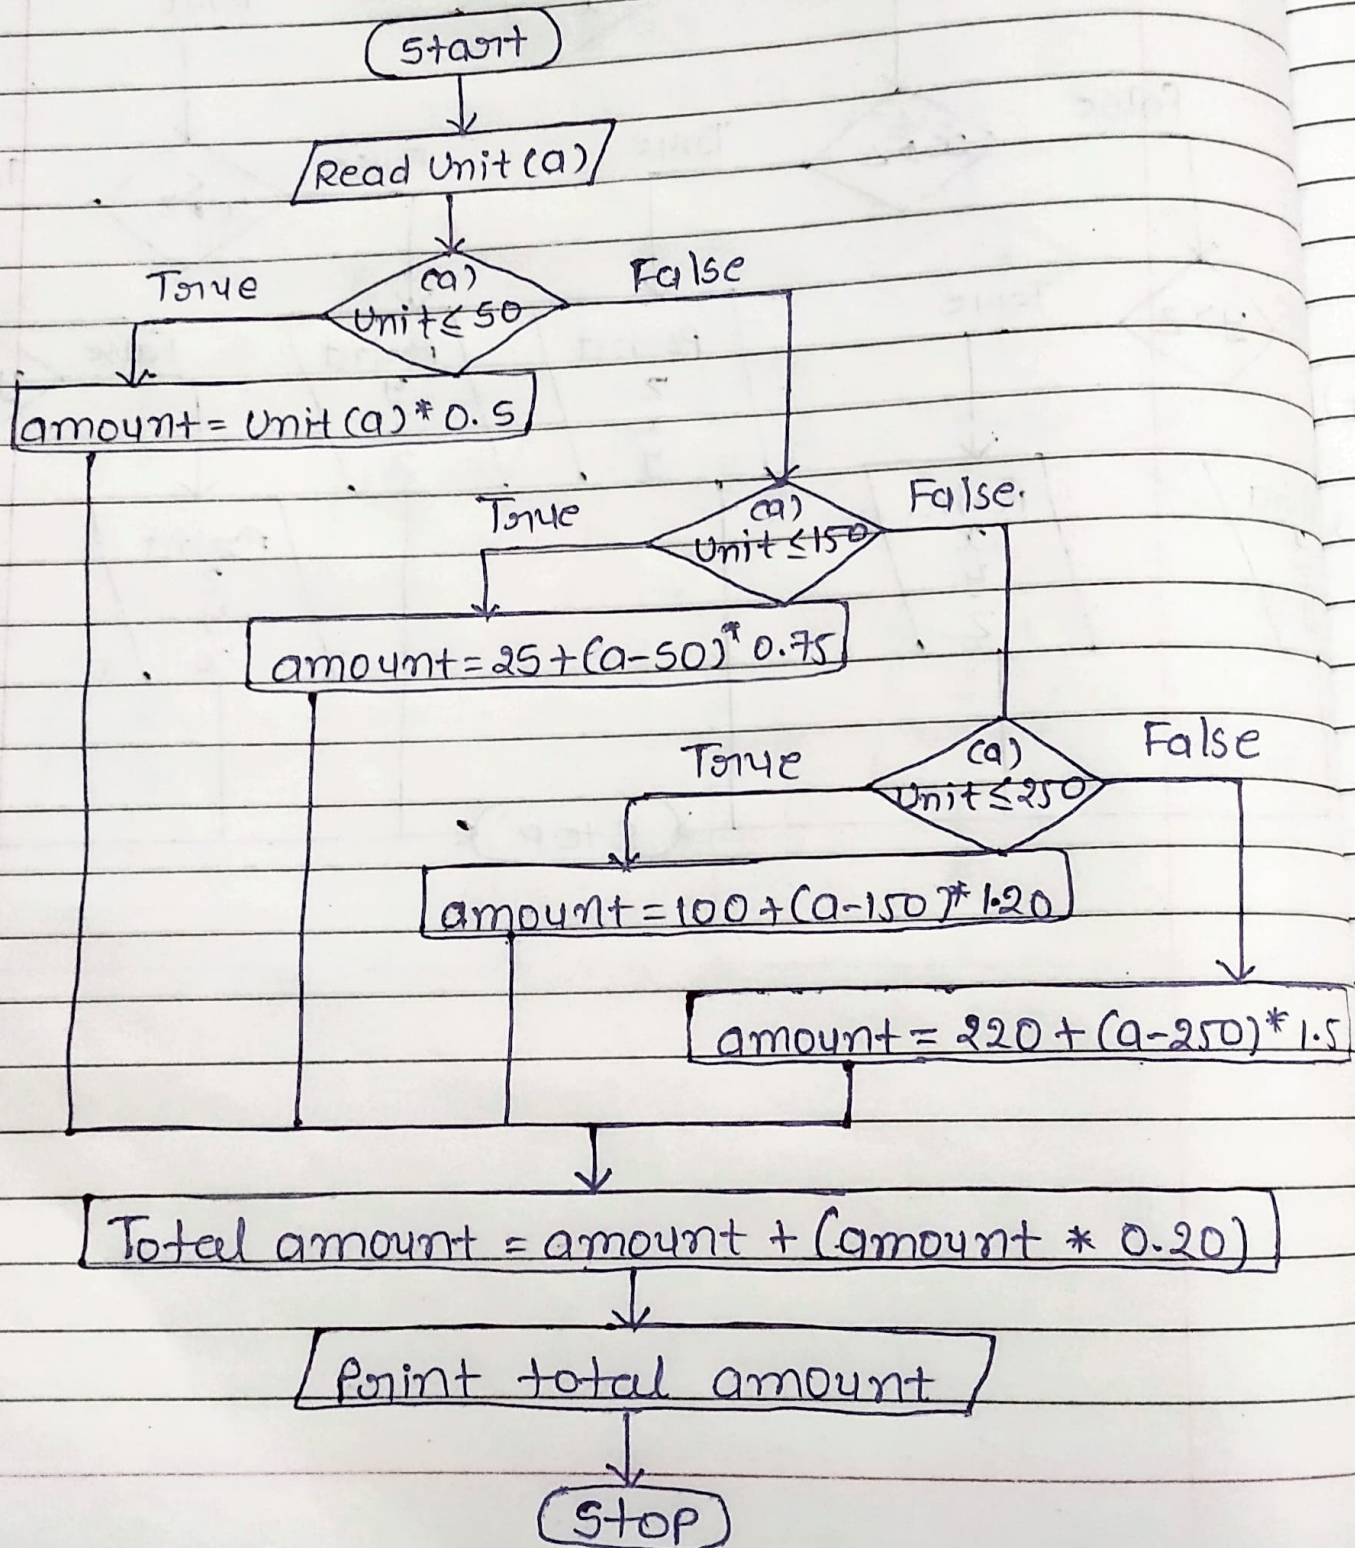 Start
Read Unit (a)
True
(a)
False
Unit ≤ 50
amount = Unit (a) * 0.5
True
(a)
False
Unit ≤ 150
amount = 25 + (a-50) * 0.75
True
(a)
False
Unit ≤ 250
amount = 100 + (a-150) * 1.20
amount = 220 + (a-250) * 1.5
Total amount = amount + (amount * 0.20)
Print total amount
Stop